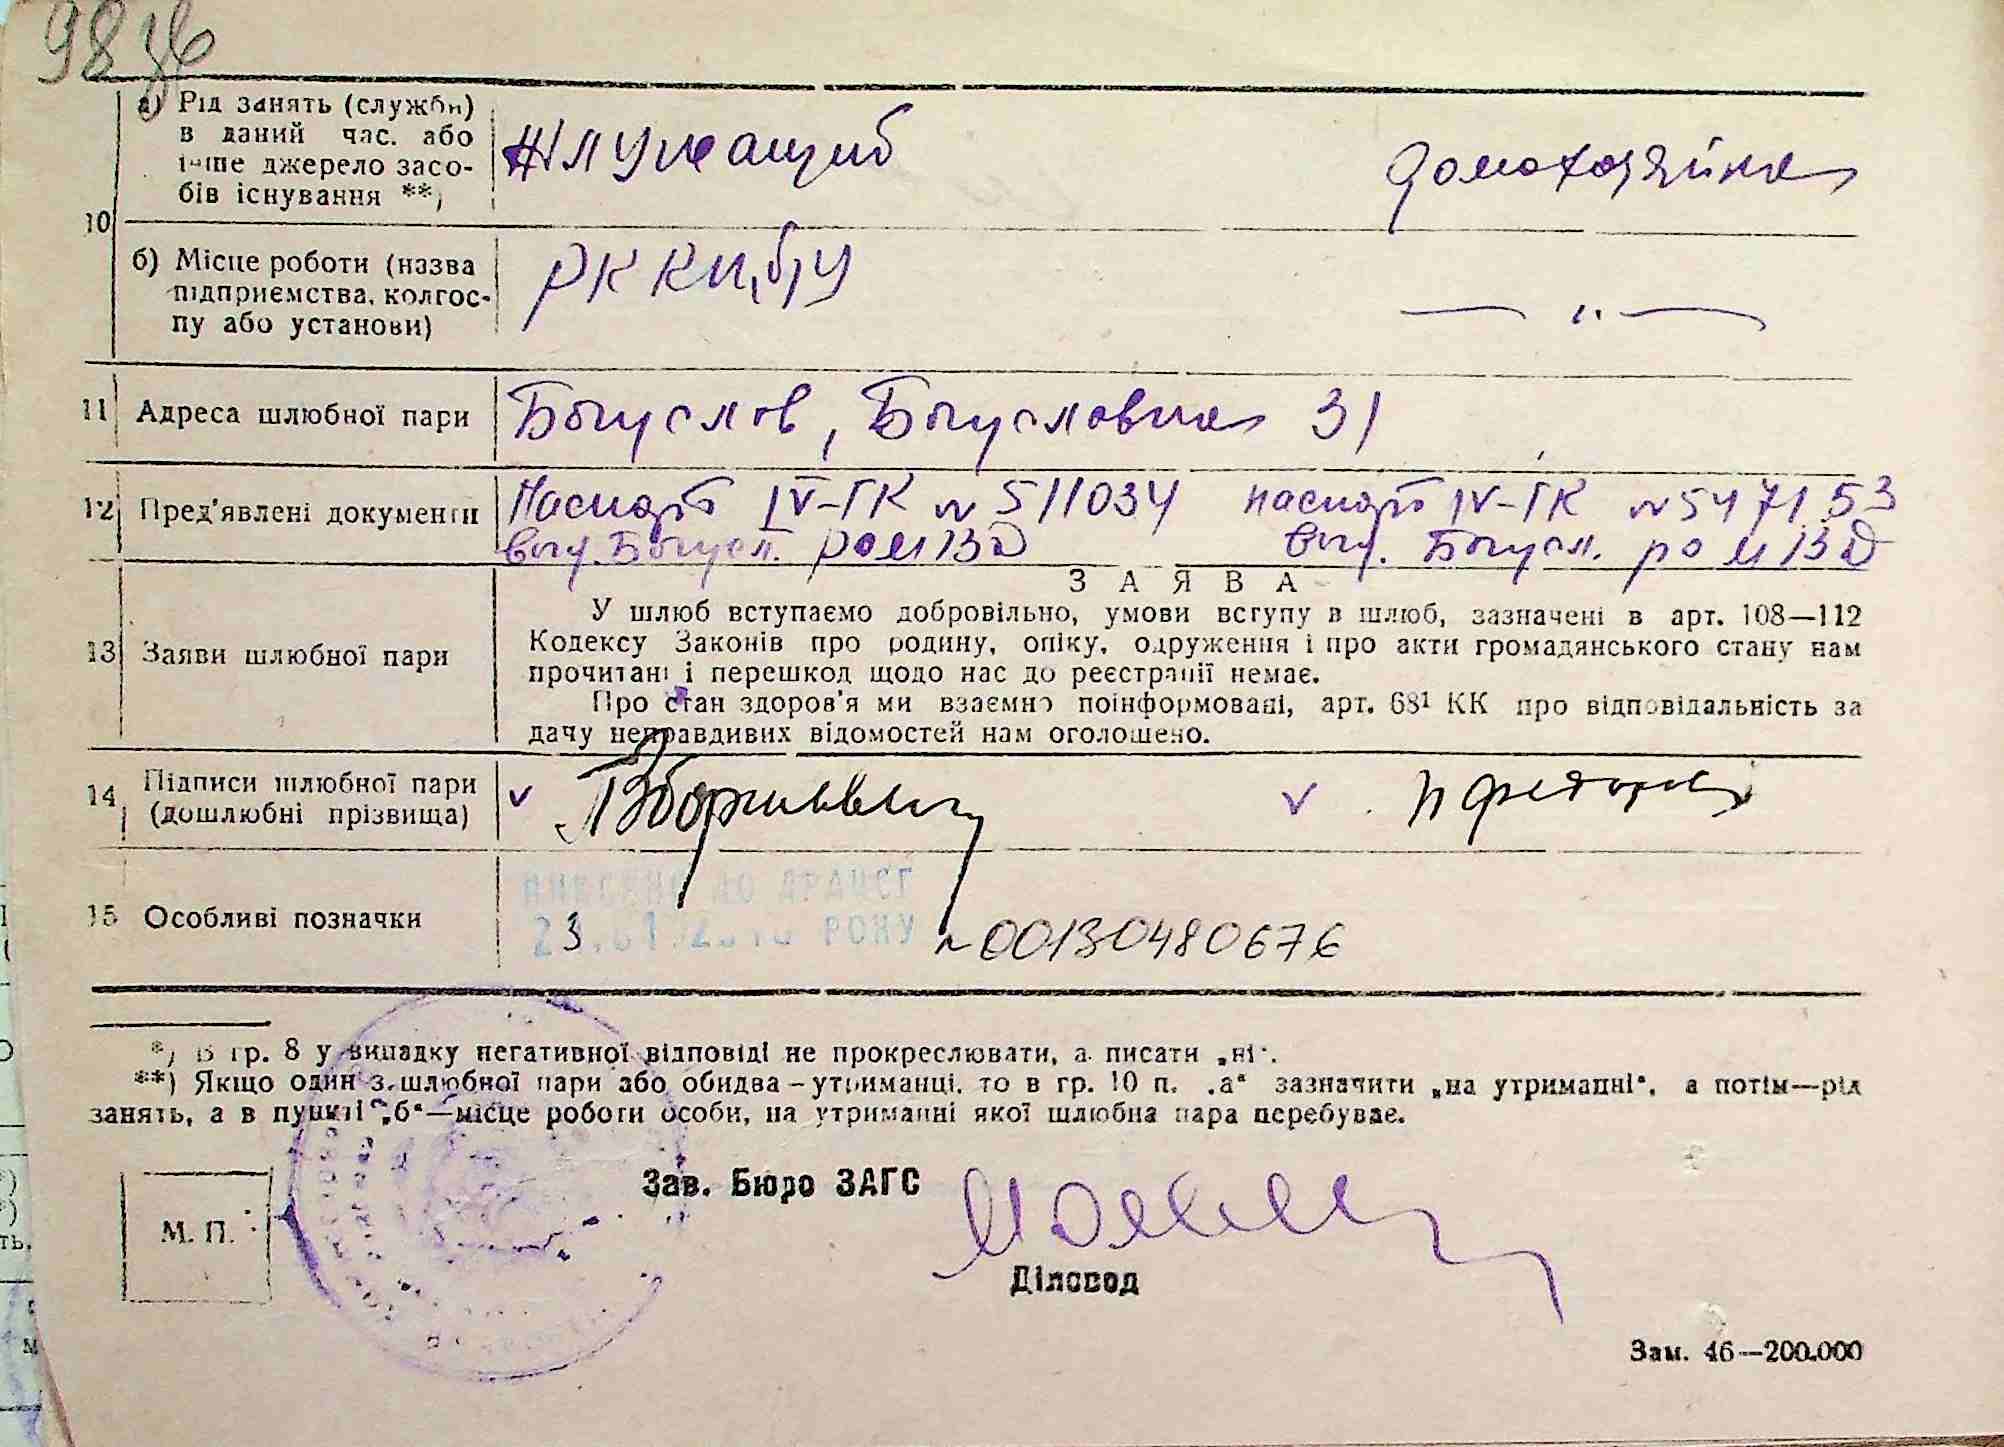 98 зв
а) Рід занять (служби)
в даний час. або
інше джерело засо-
бів існування **)
служащий
домохозяйка
10
б) Місце роботи (назва
підприємства, колгос-
пу або установи)
РК ККП,б)У
— „ —
11 Адреса шлюбної пари
Богуслов, Богуславка 31
12 Пред'явлені документи
Паспорт IV-ГК № 511034 паспорт IV-ГК № 547153
выд. Богусл. ро МВД выд. Богусл. ро МВД
13 Заяви шлюбної пари
ЗАЯВА
У шлюб вступаємо добровільно, умови вступу в шлюб, зазначені в арт. 108—112
Кодексу Законів про родину, опіку, одруження і про акти громадянського стану нам
прочитані і перешкод щодо нас до реєстрації немає.
Про стан здоров'я ми взаємно поінформовані, арт. 68¹ КК про відповідальність за
дачу неправдивих відомостей нам оголошено.
14 Підписи шлюбної пари
(дошлюбні прізвища)
15 Особливі позначки
ВНЕСЕНО ДО ДРАЦСГ
23.01.2018 РОКУ № 00130480676
*) В гр. 8 у випадку негативної відповіді не прокреслювати, а писати „ні“.
**) Якщо один з шлюбної пари або обидва – утриманці, то в гр. 10 п. „а“ зазначити „на утриманні“, а потім—рід
занять, а в пункті „б“—місце роботи особи, на утриманні якої шлюбна пара перебуває.
М. П.
Зав. Бюро ЗАГС
Діловод
Зам. 46—200.000